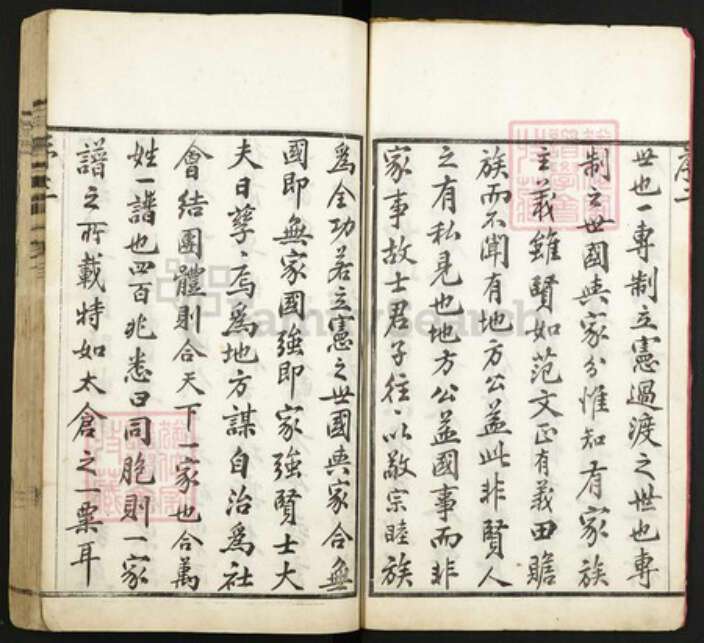 序二
世也一專制立憲過渡之世也專
制之世國與家分惟知有家族
主義雖賢如范文正有義田贍
族而不聞有地方公益此非賢人
之有私見也地方公益國事而非
家事故士君子往々以敬宗睦族
為全功若立憲之世國與家合無
國即無家國強即家強賢士大
夫日孳々焉為地方謀自治為社
會結團體則合天下一家也合萬
姓一譜也四百兆悉曰同胞則一家
譜之所載特如太倉之一粟耳
FamilySearch